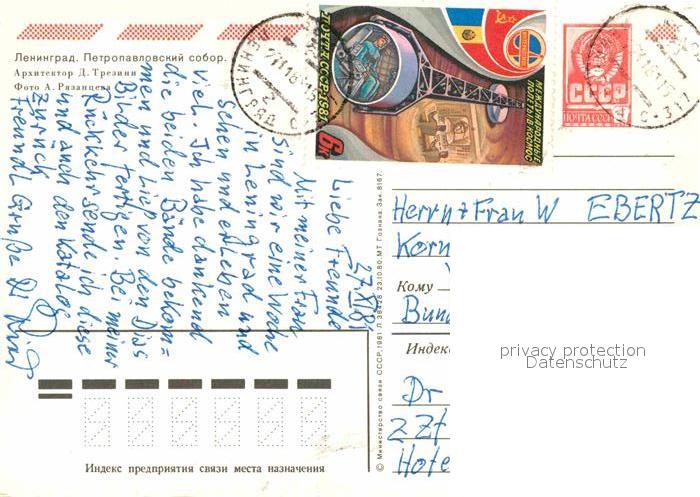 Ленинград. Петропавловский собор.
Архитектор Д. Трезини
Фото А. Рязанцева
ЛЕНИНГРАД
ПОЧТА СССР·1981
6к
МЕЖДУНАРОДНЫЕ
ПОЛЕТЫ В КОСМОС
СССР
ПОЧТА СССР
27.XI.81
Liebe Freunde
Mit meiner Frau
sind wir eine Woche
in Leningrad und
sehen und erleben
viel. Ich habe dankend
die beiden Bände bekom=
men und ließ von den Dias
Bilder fertigen. Bei meiner
Rückkehr sende ich diese
und auch den Katalog
zurück
Freundl. Grüße
Herrn + Frau W EBERTZ
Korn
Кому
Bun
Индекс
Dr
2 Zt
Hote
privacy protection
Datenschutz
© Министерство связи СССР. 1981 Л 38428 23.10.80. МТ Гознака. Зак. 8167.
Индекс предприятия связи места назначения